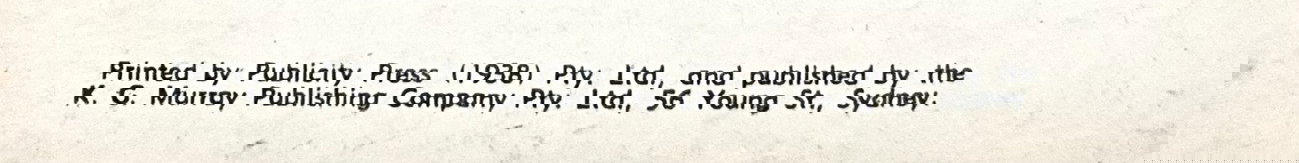 Printed by Publicity Press (1938) Pty. Ltd., and published by the
K. G. Murray Publishing Company Pty. Ltd., 56 Young St., Sydney.